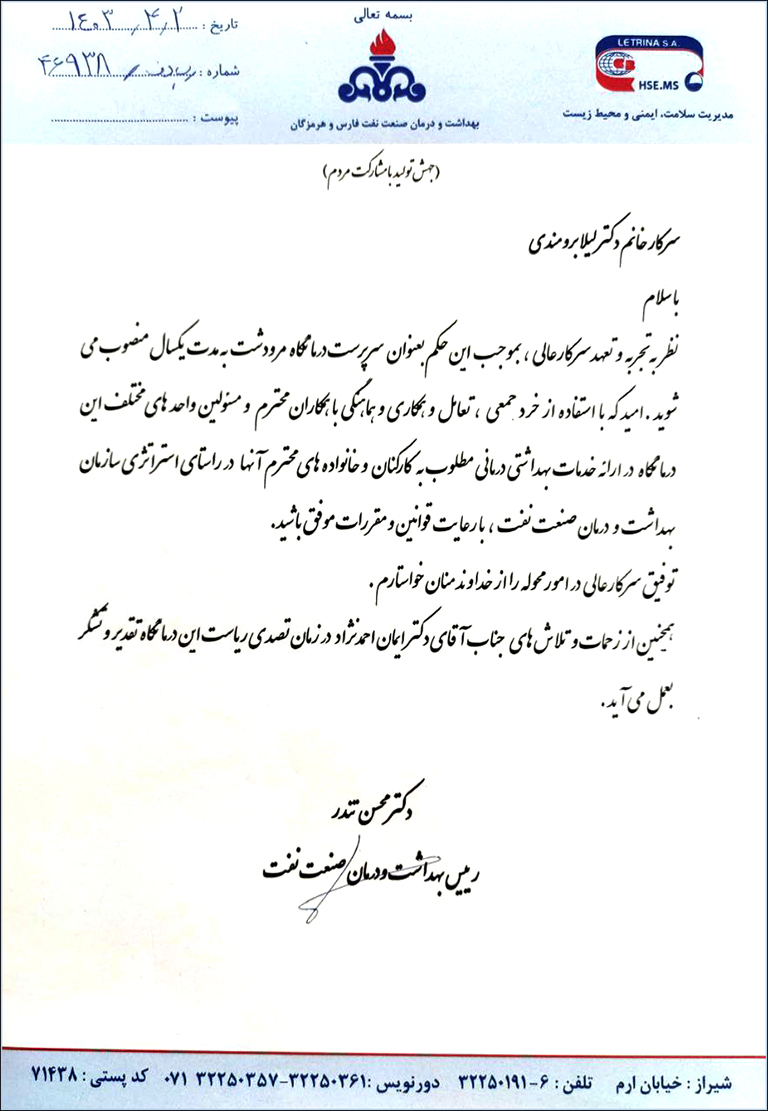 بسمه تعالی
تاریخ : ۱۴۰۳/۴/۲
شماره : ۴۶۹۳۸
پیوست :
LETRINA S.A.
HSE.MS
مدیریت سلامت، ایمنی و محیط زیست
بهداشت و درمان صنعت نفت فارس و هرمزگان
(جهش تولید با مشارکت مردم)
سرکار خانم دکتر لیلا برومندی
با سلام
نظر به تجربه و تعهد سرکارعالی ، بموجب این حکم بعنوان سرپرست درمانگاه مرودشت به مدت یکسال منصوب می
شوید . امید که با استفاده از خرد جمعی ، تعامل و همکاری و هماهنگی با همکاران محترم و مسئولین واحد های مختلف این
درمانگاه در ارائه خدمات بهداشتی درمانی مطلوب به کارکنان و خانواده های محترم آنها در راستای استراتژی سازمان
بهداشت و درمان صنعت نفت ، با رعایت قوانین و مقررات موفق باشید.
توفیق سرکارعالی در امور محوله را از خداوند منان خواستارم .
همچنین از زحمات و تلاش های جناب آقای دکتر ایمان احمدنژاد در زمان تصدی ریاست این درمانگاه تقدیر و تشکر
بعمل می آید .
دکتر محسن تندر
رییس بهداشت و درمان صنعت نفت
شیراز : خیابان ارم تلفن : ۶-۳۲۲۵۰۱۹۱ دورنویس : ۳۲۲۵۰۳۶۱-۳۲۲۵۰۳۵۷ ۰۷۱ کد پستی : ۷۱۴۳۸